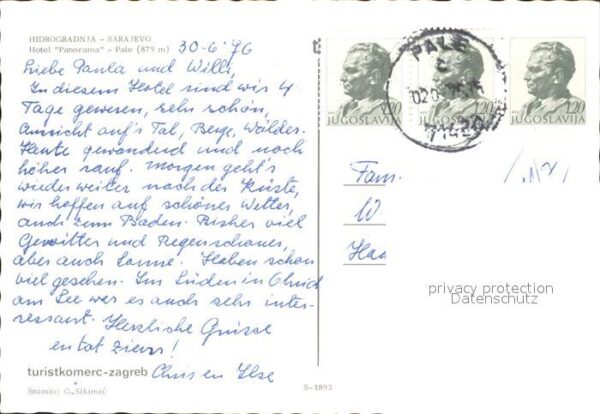 HIDROGRADNJA - SARAJEVO
Hotel "Panorama" - Pale (879 m)
30-6-'76
Liebe Paula und Willi,
In diesem Hotel sind wir 4
Tage gewesen, sehr schön
Aussicht auf's Tal, Berge, Wälder.
Heute gewandend und noch
höher rauf. Morgen geht's
wieder weiter nach der Küste,
wir hoffen auf schönes Wetter,
auch zum Baden. Bisher viel
Gewitter und Regenschauer,
aber auch Sonne. Haben schon
viel gesehen. Im Süden in Ohrid
am See war es auch sehr inter-
ressant. Herzliche Grüsse
en tot ziens!
Chris en Ilse
turistkomerc-zagreb
Snimio: G. Sikimić
S-1893
PALE
71420
1.20
JUGOSLAVIJA
1.20
JUGOSLAVIJA
1.20
JUGOSLAVIJA
Fam.
W
Haa
privacy protection
Datenschutz